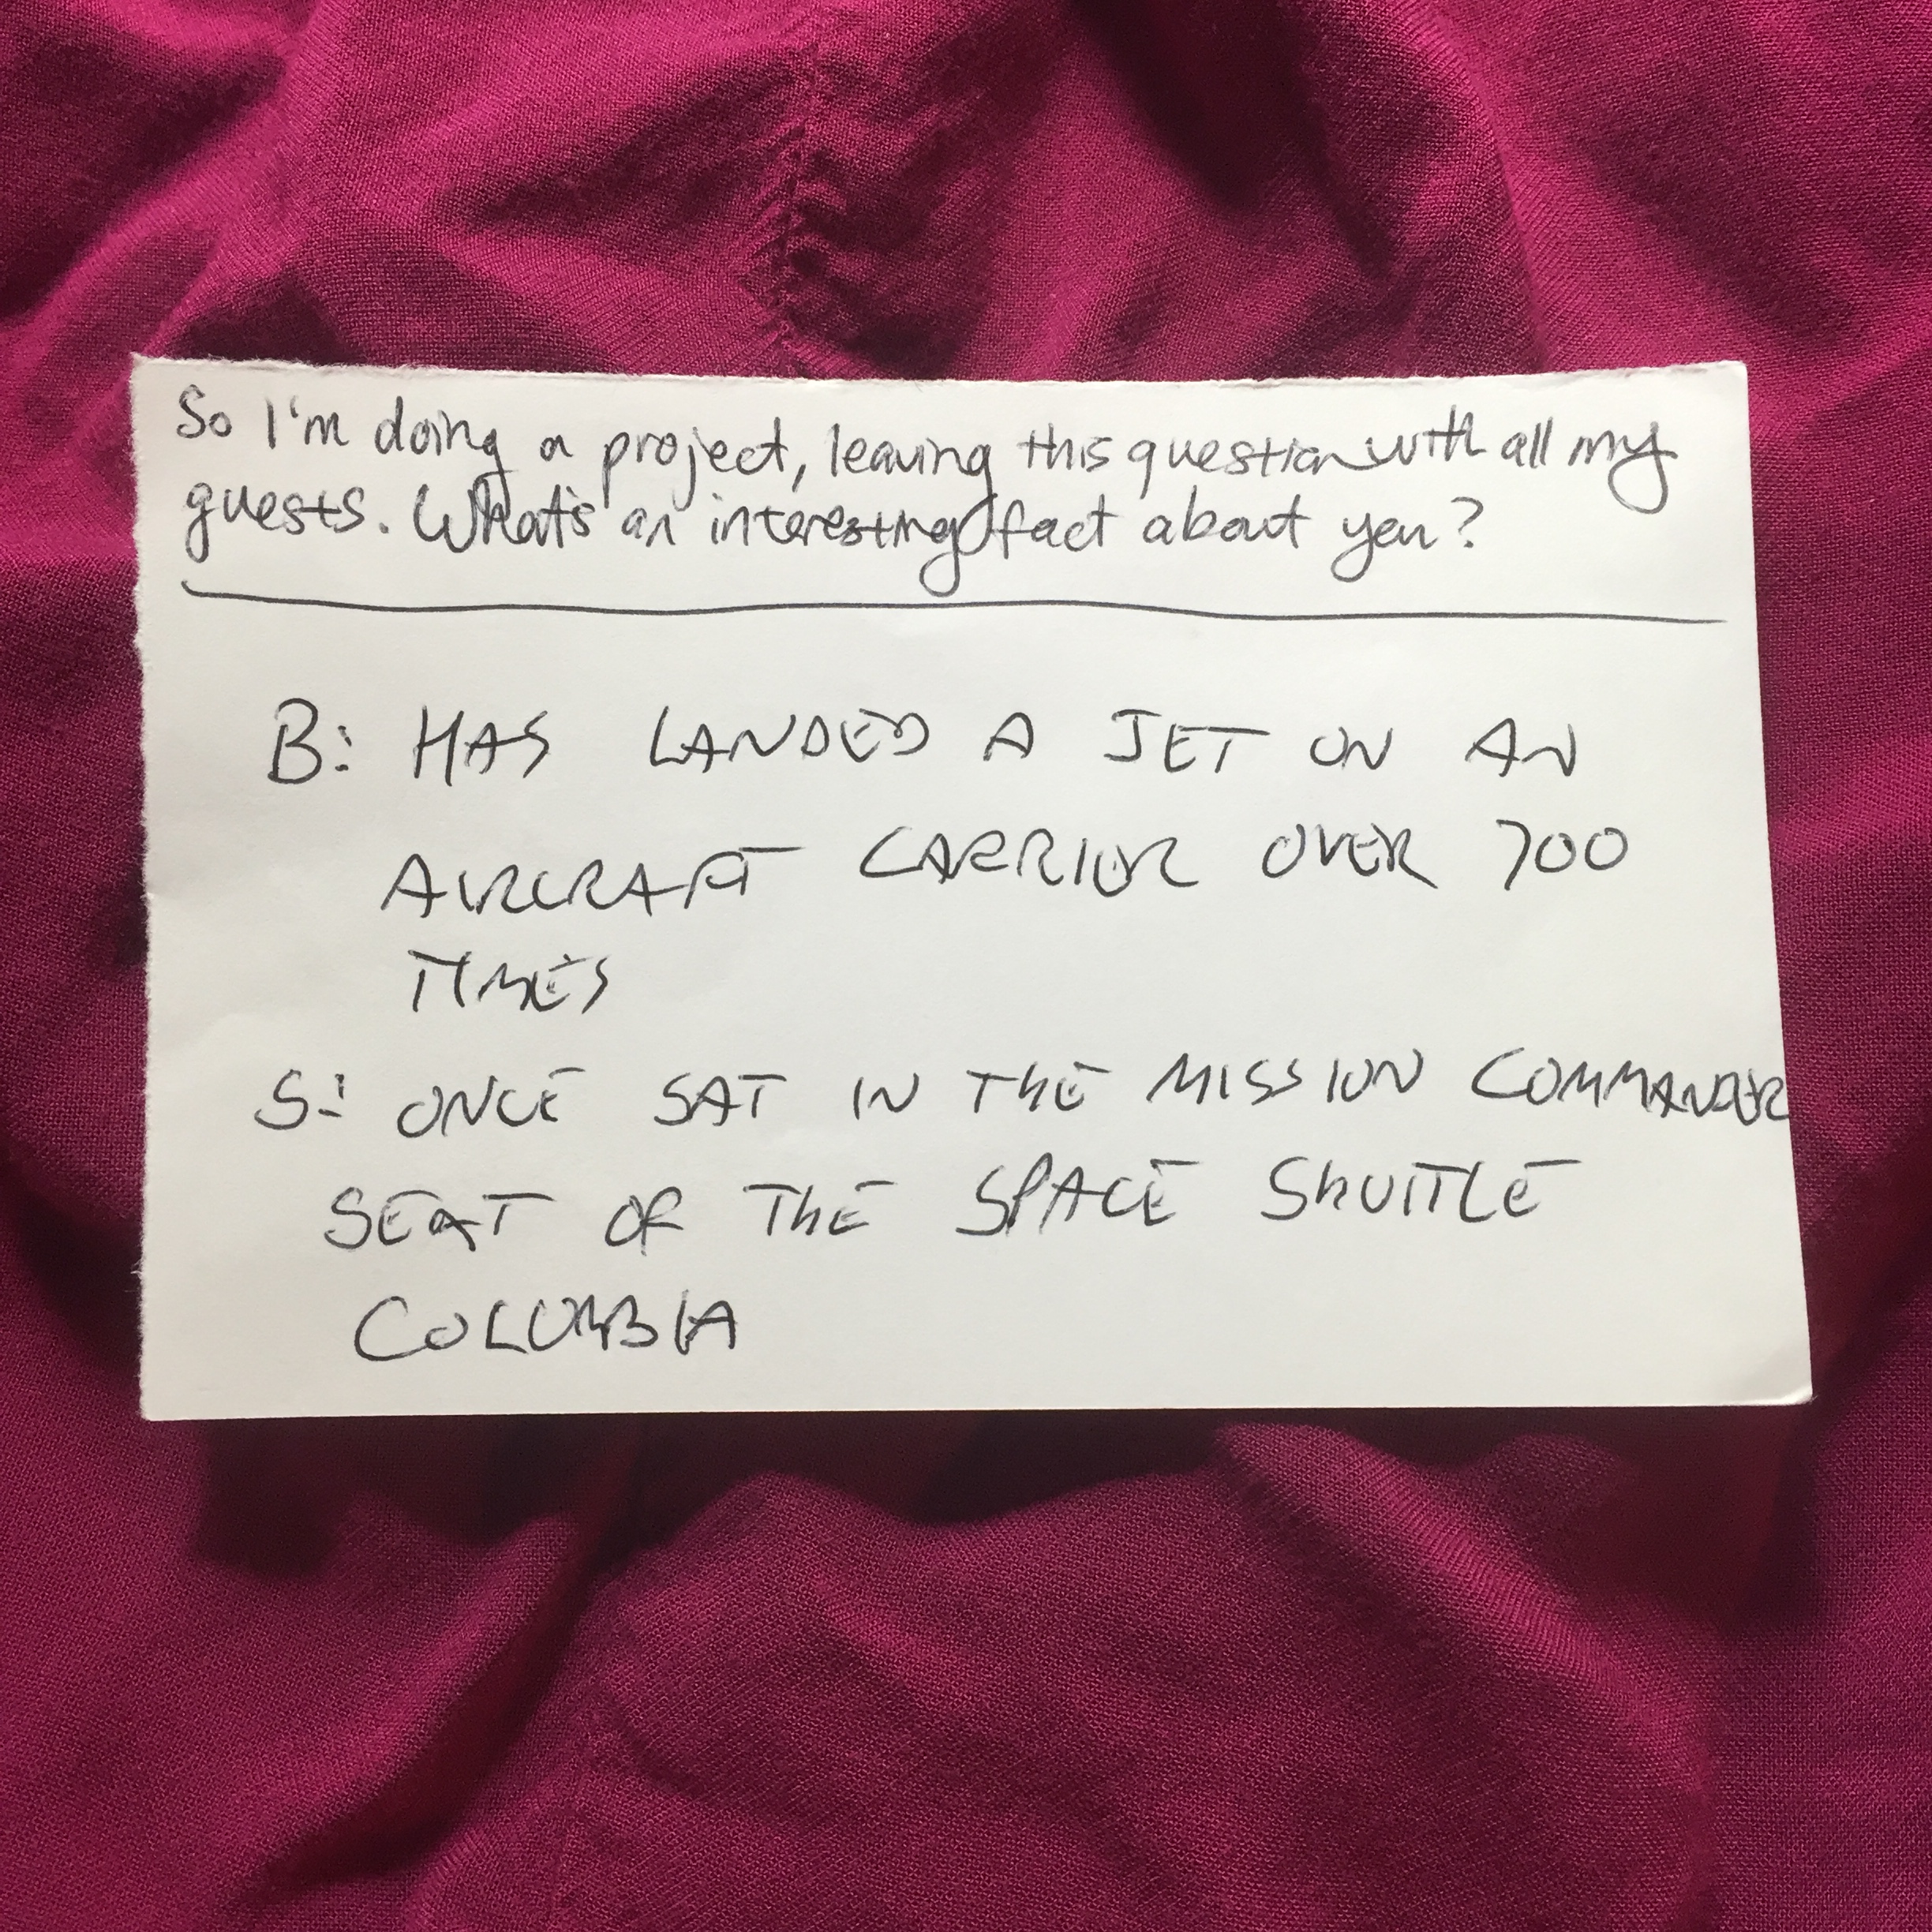 So I'm doing a project, leaving this question with all my
guests. What's an interesting fact about you?
B: HAS LANDED A JET ON AN
AIRCRAFT CARRIER OVER 700
TIMES
S: ONCE SAT IN THE MISSION COMMANDER
SEAT OF THE SPACE SHUTTLE
COLUMBIA